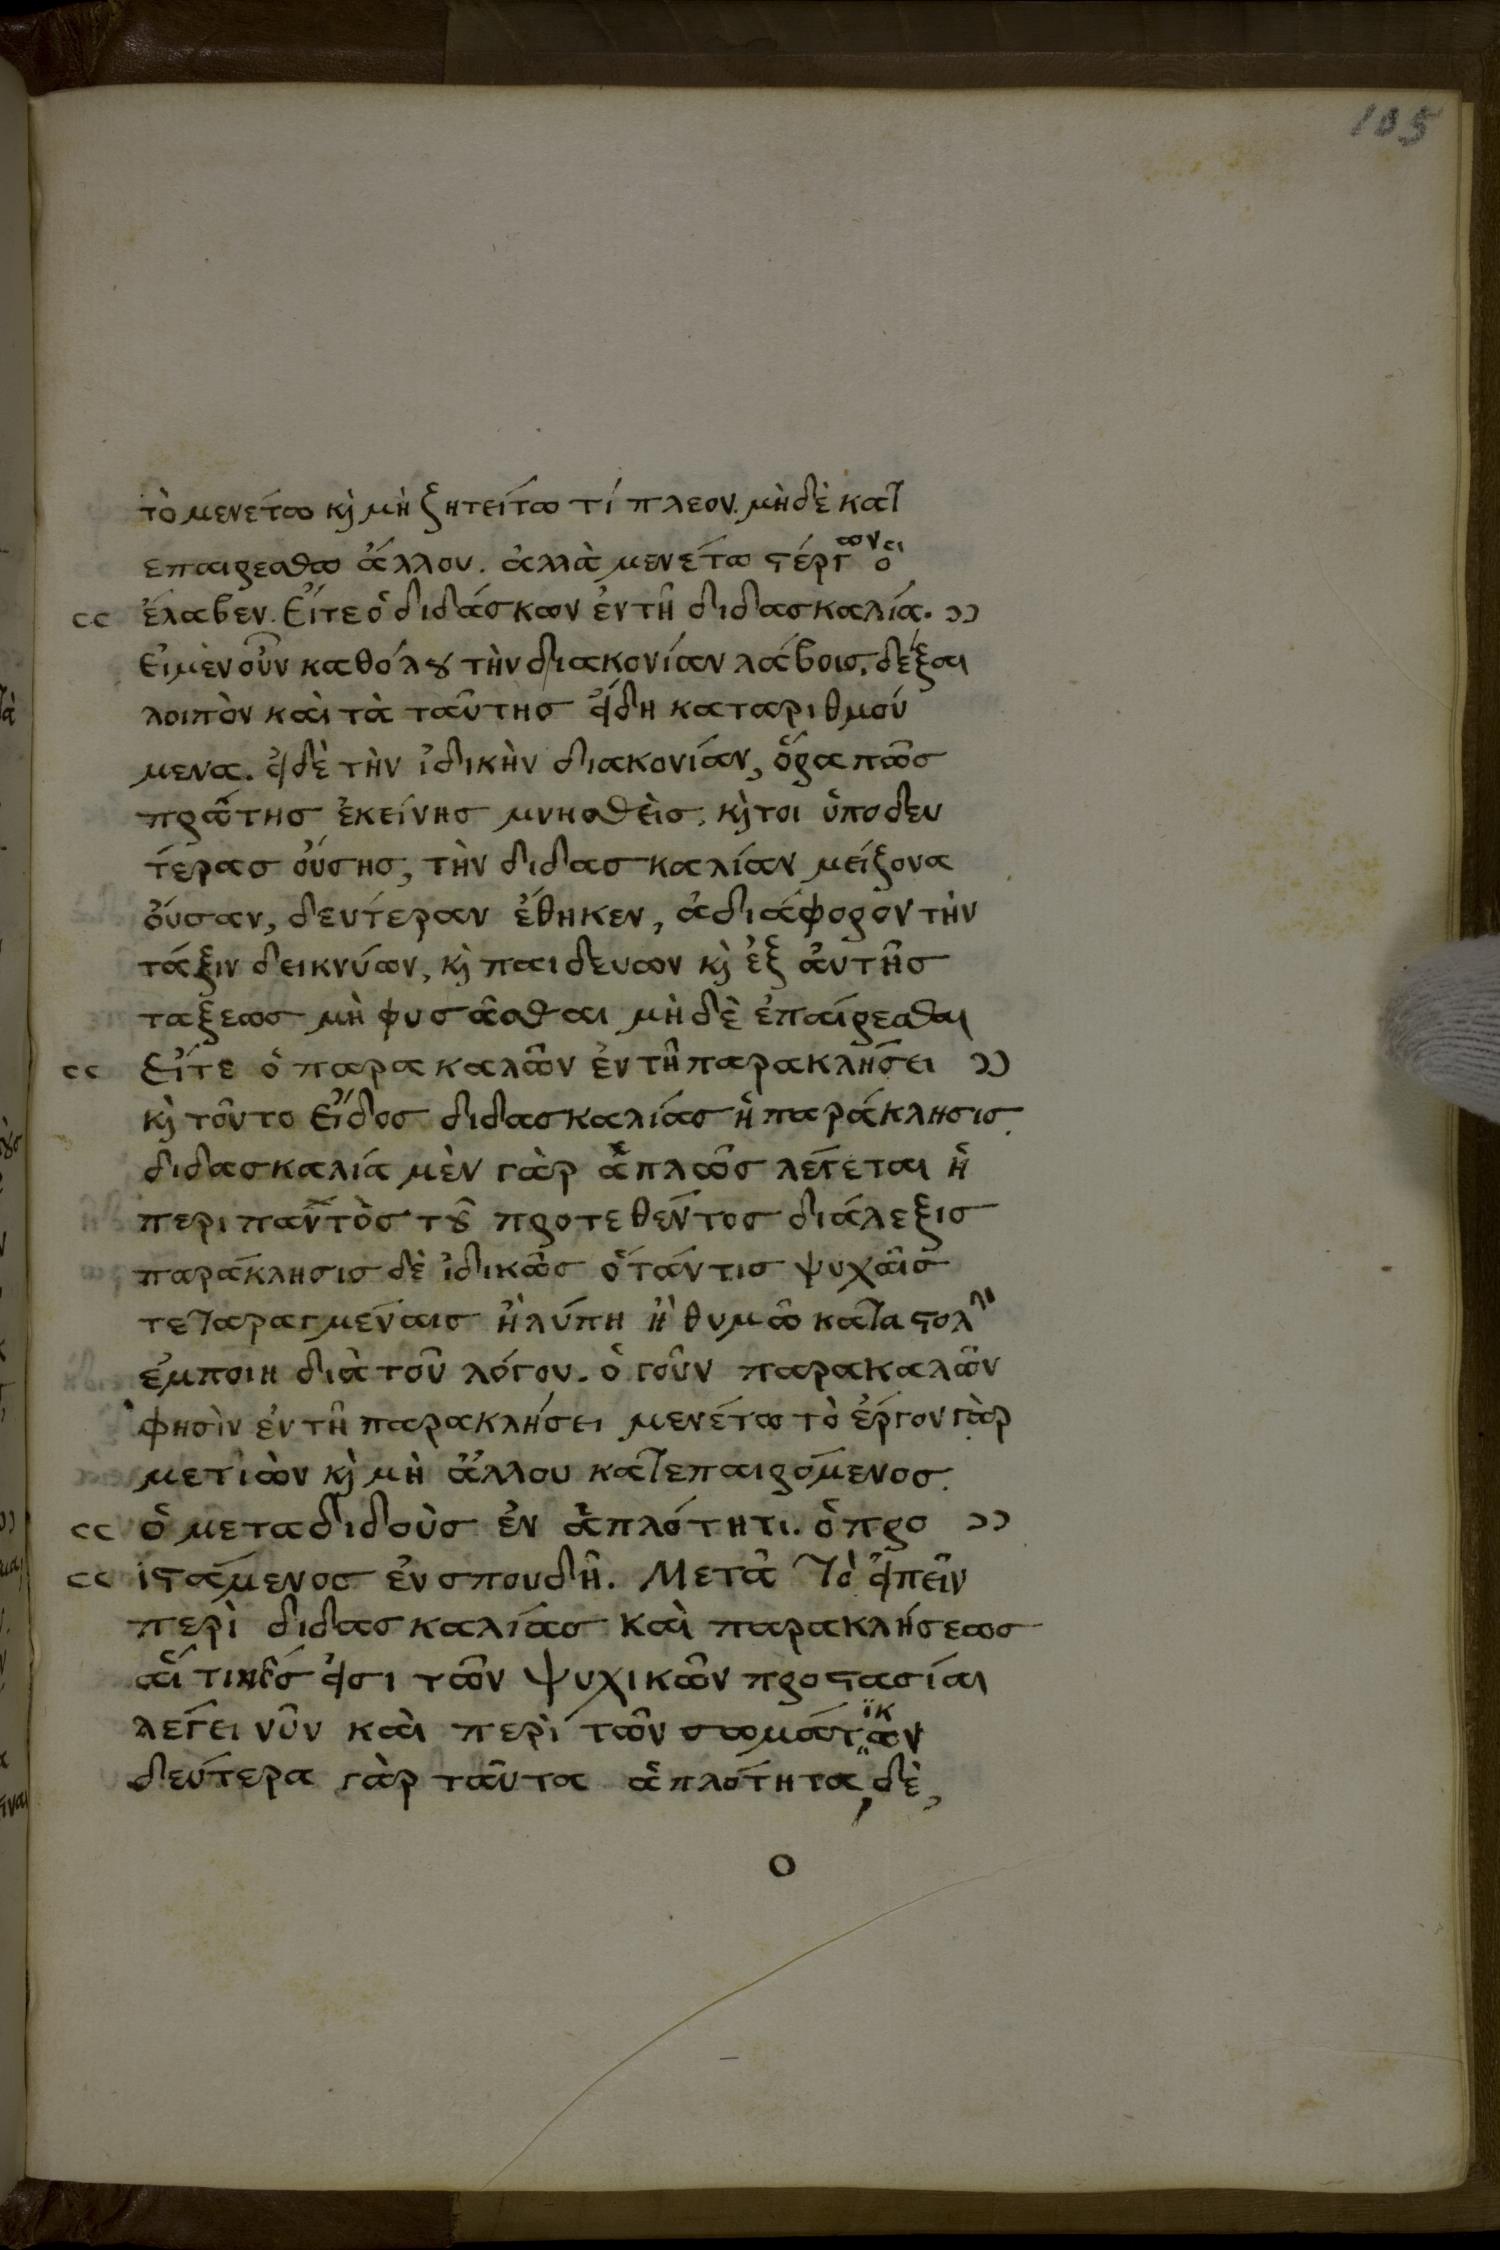 105
τὸ μενέτω κὶ μὴ ζητείτω τί πλεον. μὴ δὲ κατ
επαιρεσθω ἄλλου. ἀλλὰ μενέτω στέργων ὁ
ἔλαβεν. Εἴτε ὁ διδάσκων ἐν τῆ διδασκαλία.
Εἰ μὲν οὖν καθόλου τὴν διακονίαν λάβοις, δέξαι
λοιπὸν καὶ τὰ ταύτης εἴδη καταριθμού
μενα. εἰ δὲ τὴν ἰδικὴν διακονίαν, ὅρα πῶς
πρώτης ἐκείνης μνησθεὶς, κὶ τοι ὑπο δευ
τέρας οὔσης, τὴν διδασκαλίαν μείζονα
οὖσαν, δευτέραν ἔθηκεν, ἀδιάφορον τὴν
τάξιν δεικνύων, κὶ παιδευων κὶ ἐξ αὐτῆς
ταξεως μὴ φυσᾶσθαι μὴ δὲ ἐπαίρεσθαι
Εἴτε ὁ παρακαλῶν ἐν τῆ παρακλήσει
κὶ τοῦτο εἶδος διδασκαλίας ἡ παράκλησις.
διδασκαλία μὲν γὰρ ἁπλῶς λέγεται ἡ
περι παντὸς τοῦ προτεθέντος διάλεξις
παράκλησις δὲ ἰδικῶς ὅτάν τις ψυχαῖς
τεταραγμέναις ἢ λύπη ἢ θυμῶ καταστολὴν
ἐμποιη διὰ τοῦ λόγου. ὁ γοῦν παρακαλῶν
φησὶν ἐν τῆ παρακλήσει μενέτω τὸ ἔργον γὰρ
μετιὼν κὶ μὴ ἄλλου κατεπαιρόμενος.
ὁ μεταδιδοὺς ἐν ἁπλότητι. ὁ προ
ιστάμενος ἐν σπουδῆ. Μετὰ τὸ εἰπεῖν
περὶ διδασκαλίας καὶ παρακλήσεως
αἵ τινές εἰσι τῶν ψυχικῶν προστασίαι
λέγει νῦν καὶ περὶ τῶν σωματικῶν
δεύτερα γὰρ ταῦτα ἁπλότητα, δὲ,
ο